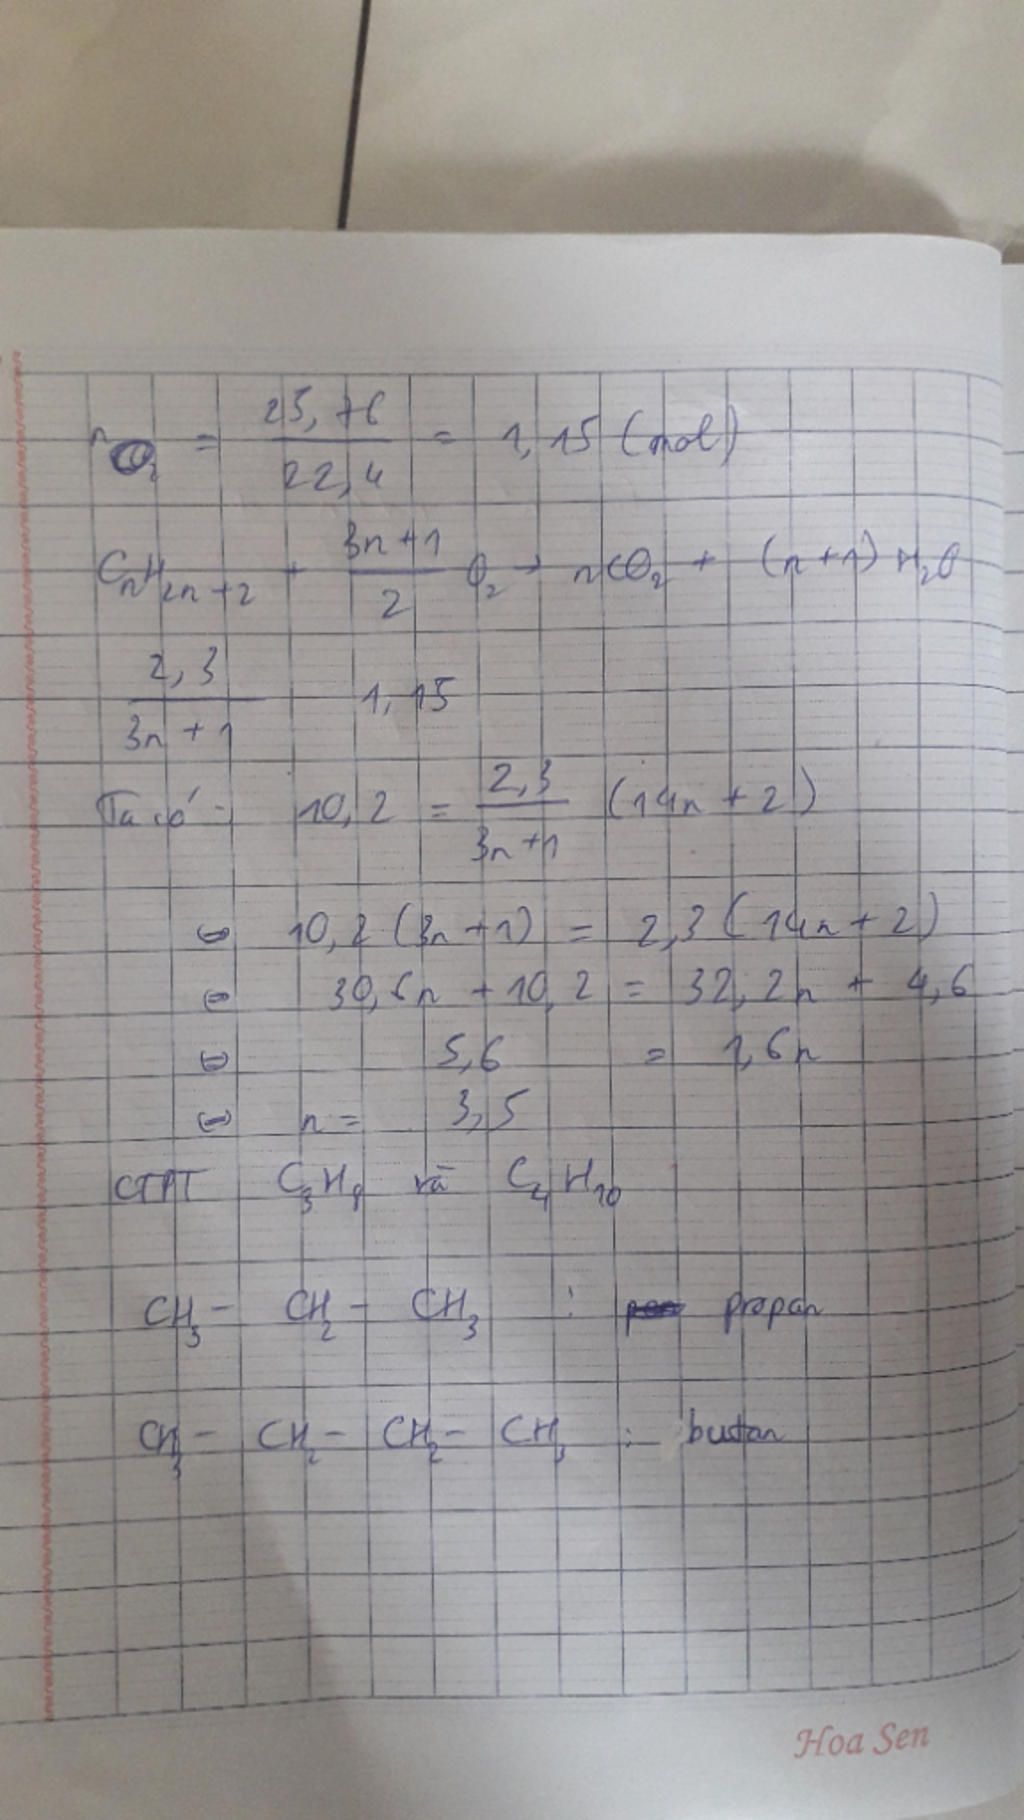 nO₂ = 25,76 / 22,4 = 1,15 (mol)
CₙH₂ₙ₊₂ + (3n+1)/2 O₂ → nCO₂ + (n+1) H₂O
2,3 / (3n+1) 1,15
Ta có: 10,2 = 2,3 / (3n+1) (14n + 2)
⇔ 10,2 (3n+1) = 2,3 (14n + 2)
⇔ 30,6n + 10,2 = 32,2n + 4,6
⇔ 5,6 = 1,6n
⇔ n = 3,5
CTPT C₃H₈ và C₄H₁₀
CH₃ - CH₂ - CH₃ : propan
CH₃ - CH₂ - CH₂ - CH₃ : butan
Hoa Sen